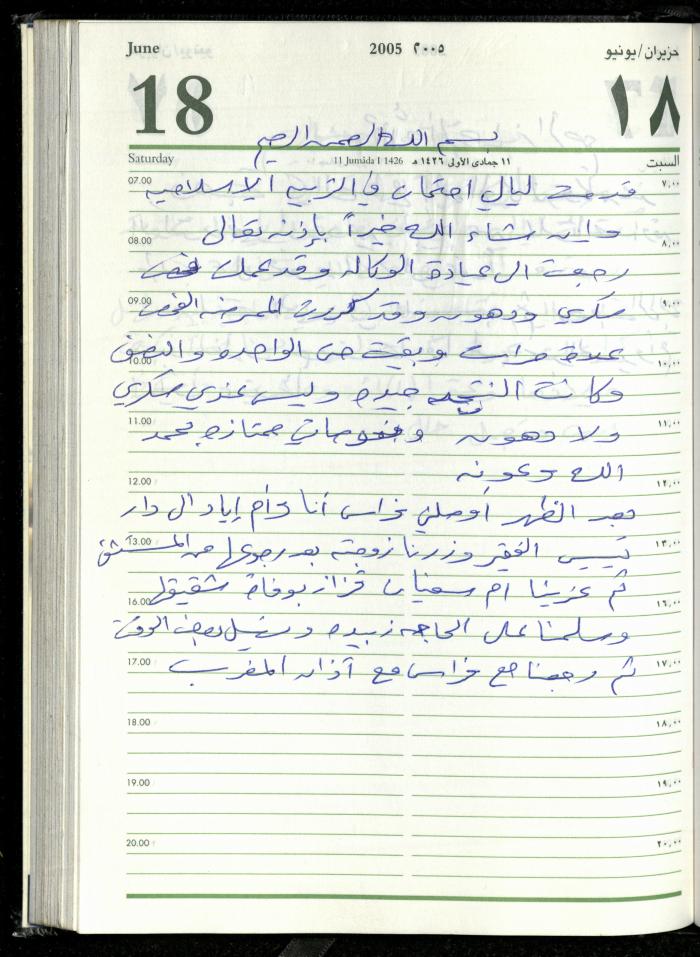 June 2005 ٢٠٠٥ حزيران/يونيو
18 ١٨
بسم الله الرحمن الرحيم
Saturday 11 Jumada I 1426 ١١ جمادى الأولى ١٤٢٦ هـ السبت
07.00 قدمت ليال امتحان في التربيه الاسلاميه ٧,٠٠
وان شاء الله خيراً بإذنه تعالى
08.00 ٨,٠٠
رجعت ال عيادة الوكاله وقد عملت فحص
09.00 سكري ودهون وقد كررت الممرضه الفحص ٩,٠٠
ثلاث مرات وبقيت حتى الواحده والنصف
10.00 ١٠,٠٠
وكانت النتيجه جيده وليس عندي سكري
11.00 ولا دهون وفحوصاتي ممتازه بحمد ١١,٠٠
الله وعونه
12.00 ١٢,٠٠
بعد الظهر أوصلني فراس أنا وأم إياد ال دار
13.00 تيسير الفقير وزرنا زوجته بعد رجوعها من المستشفى ١٣,٠٠
ثم عزينا ام سفيان قزاز بوفاة شقيقها
16.00 ١٦,٠٠
وسلمنا على الحاجه زبيده بعض الوقت
17.00 ثم رجعنا مع فراس مع آذان المغرب ١٧,٠٠
18.00 ١٨,٠٠
19.00 ١٩,٠٠
20.00 ٢٠,٠٠